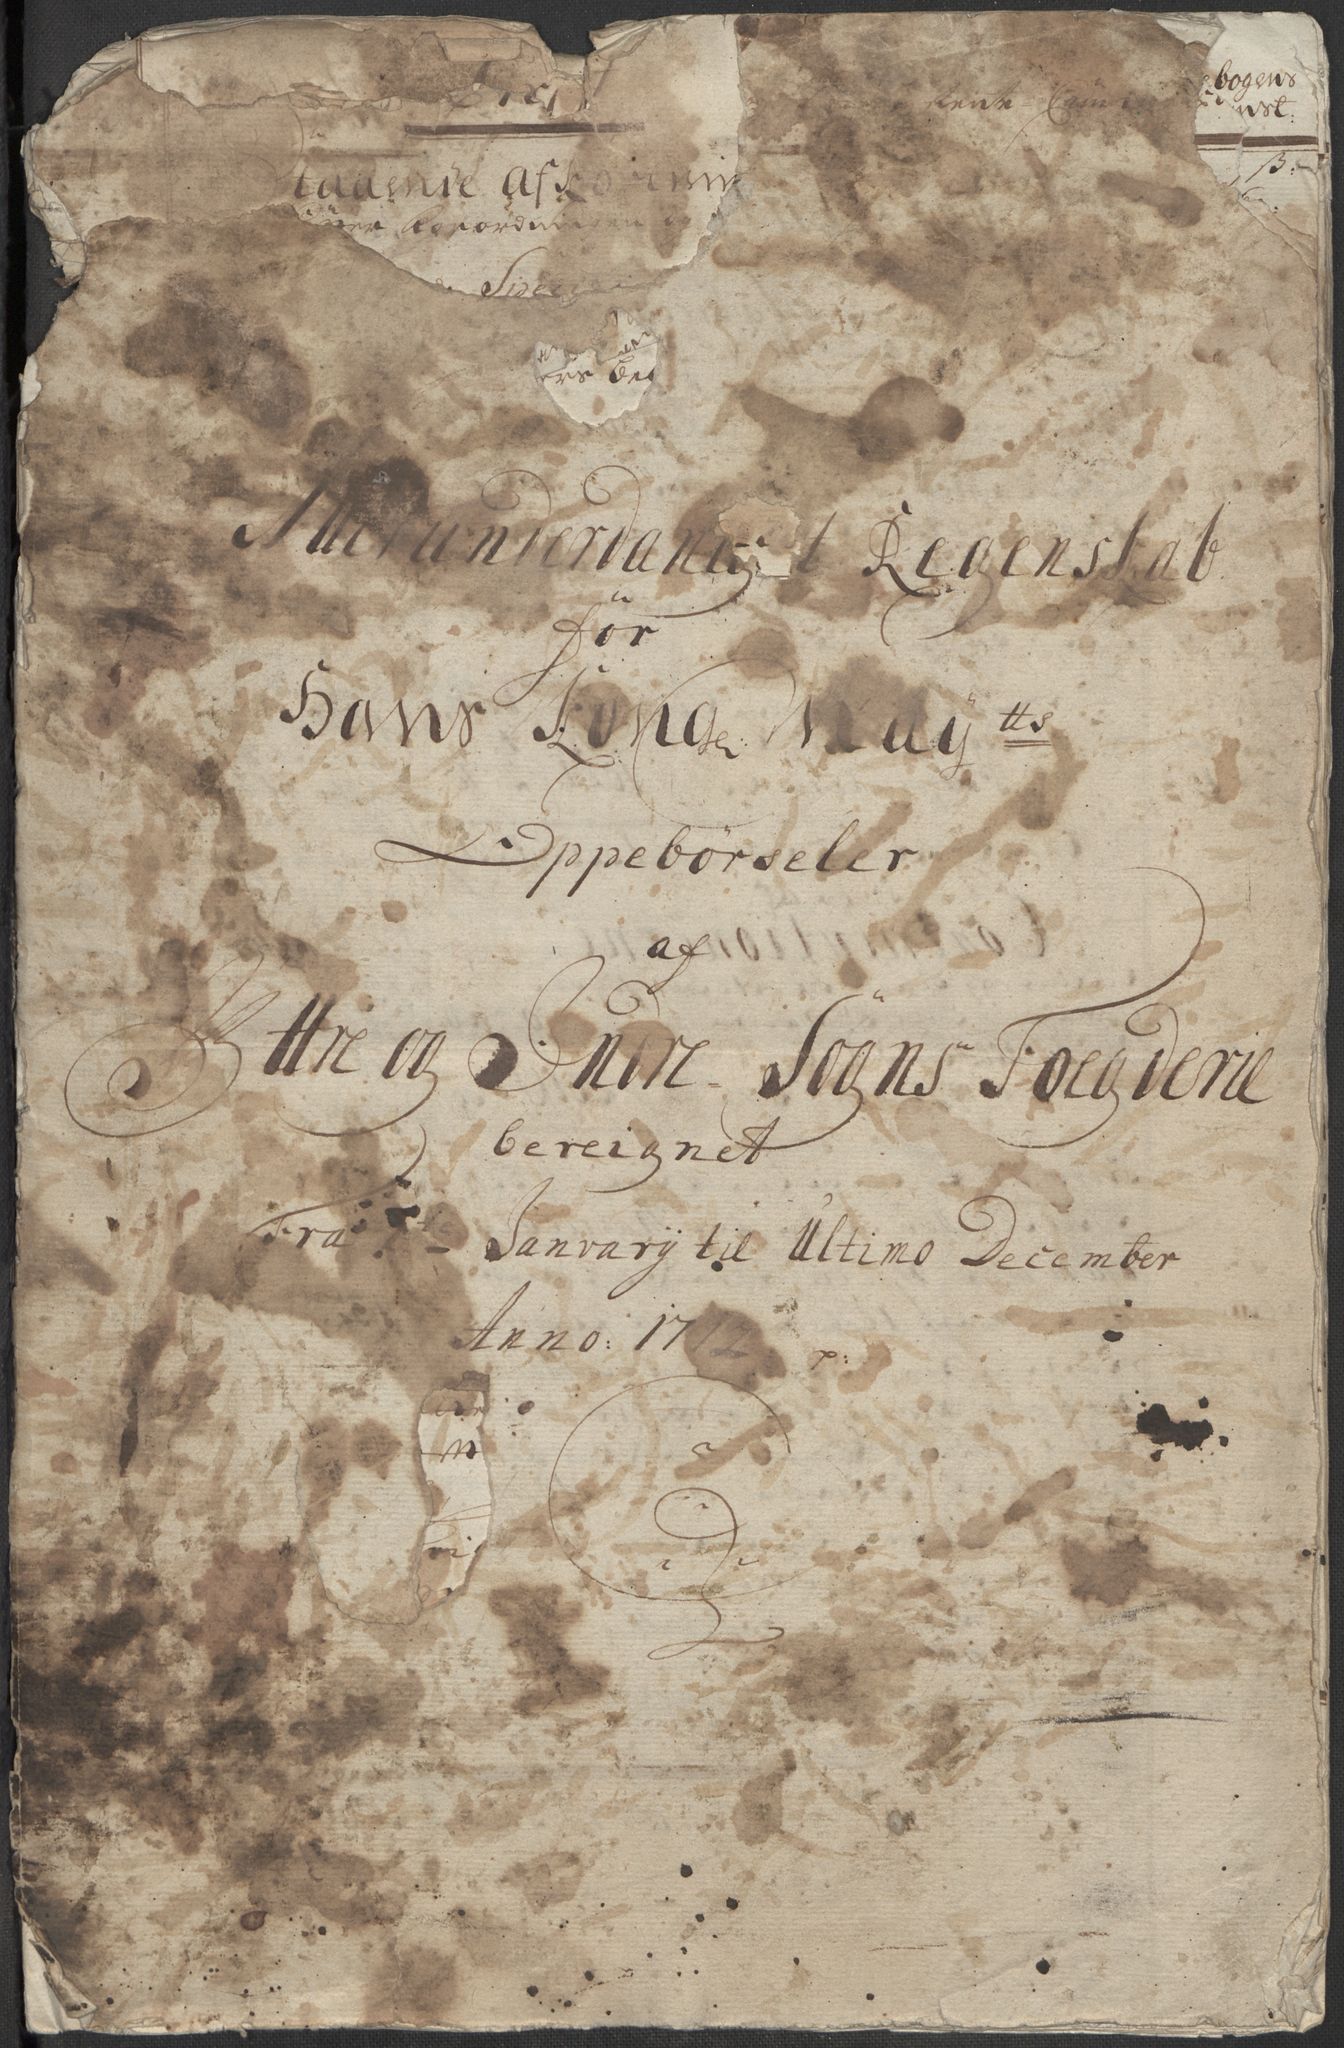 bogens
Allerunderdanigst Regenskab
för
Hans Kong: Maÿtts
Oppebörseler
af
Yttre og Indre Sogns Foegderie
bereignet
Fra Janvarÿ til Ultimo December
Anno: 1712